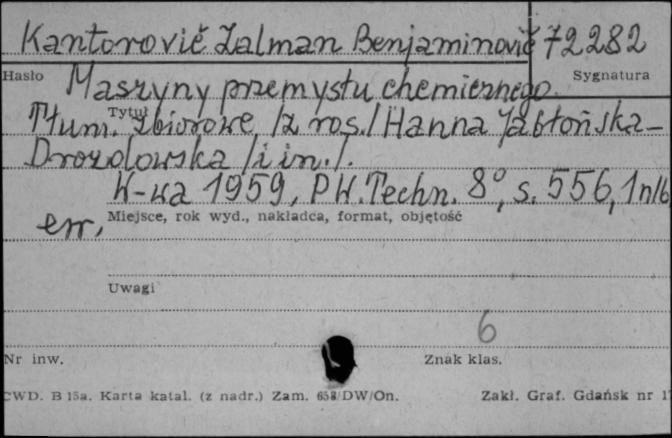 Kantorovič Zalman Benjaminovič 72282
Hasło Maszyny przemysłu chemicznego. Sygnatura
Tytuł
Tłum. zbiorowe /z ros./ Hanna Jabłońska-
Drozdowska /i in./.
W-wa 1959, PW. Techn. 8°, s. 556, 1 nlb
err,
Miejsce, rok wyd., nakładca, format, objętość
Uwagi
6
Nr inw. Znak klas.
CWD. B 15a. Karta katal. (z nadr.) Zam. 658/DW/On. Zakł. Graf. Gdańsk nr